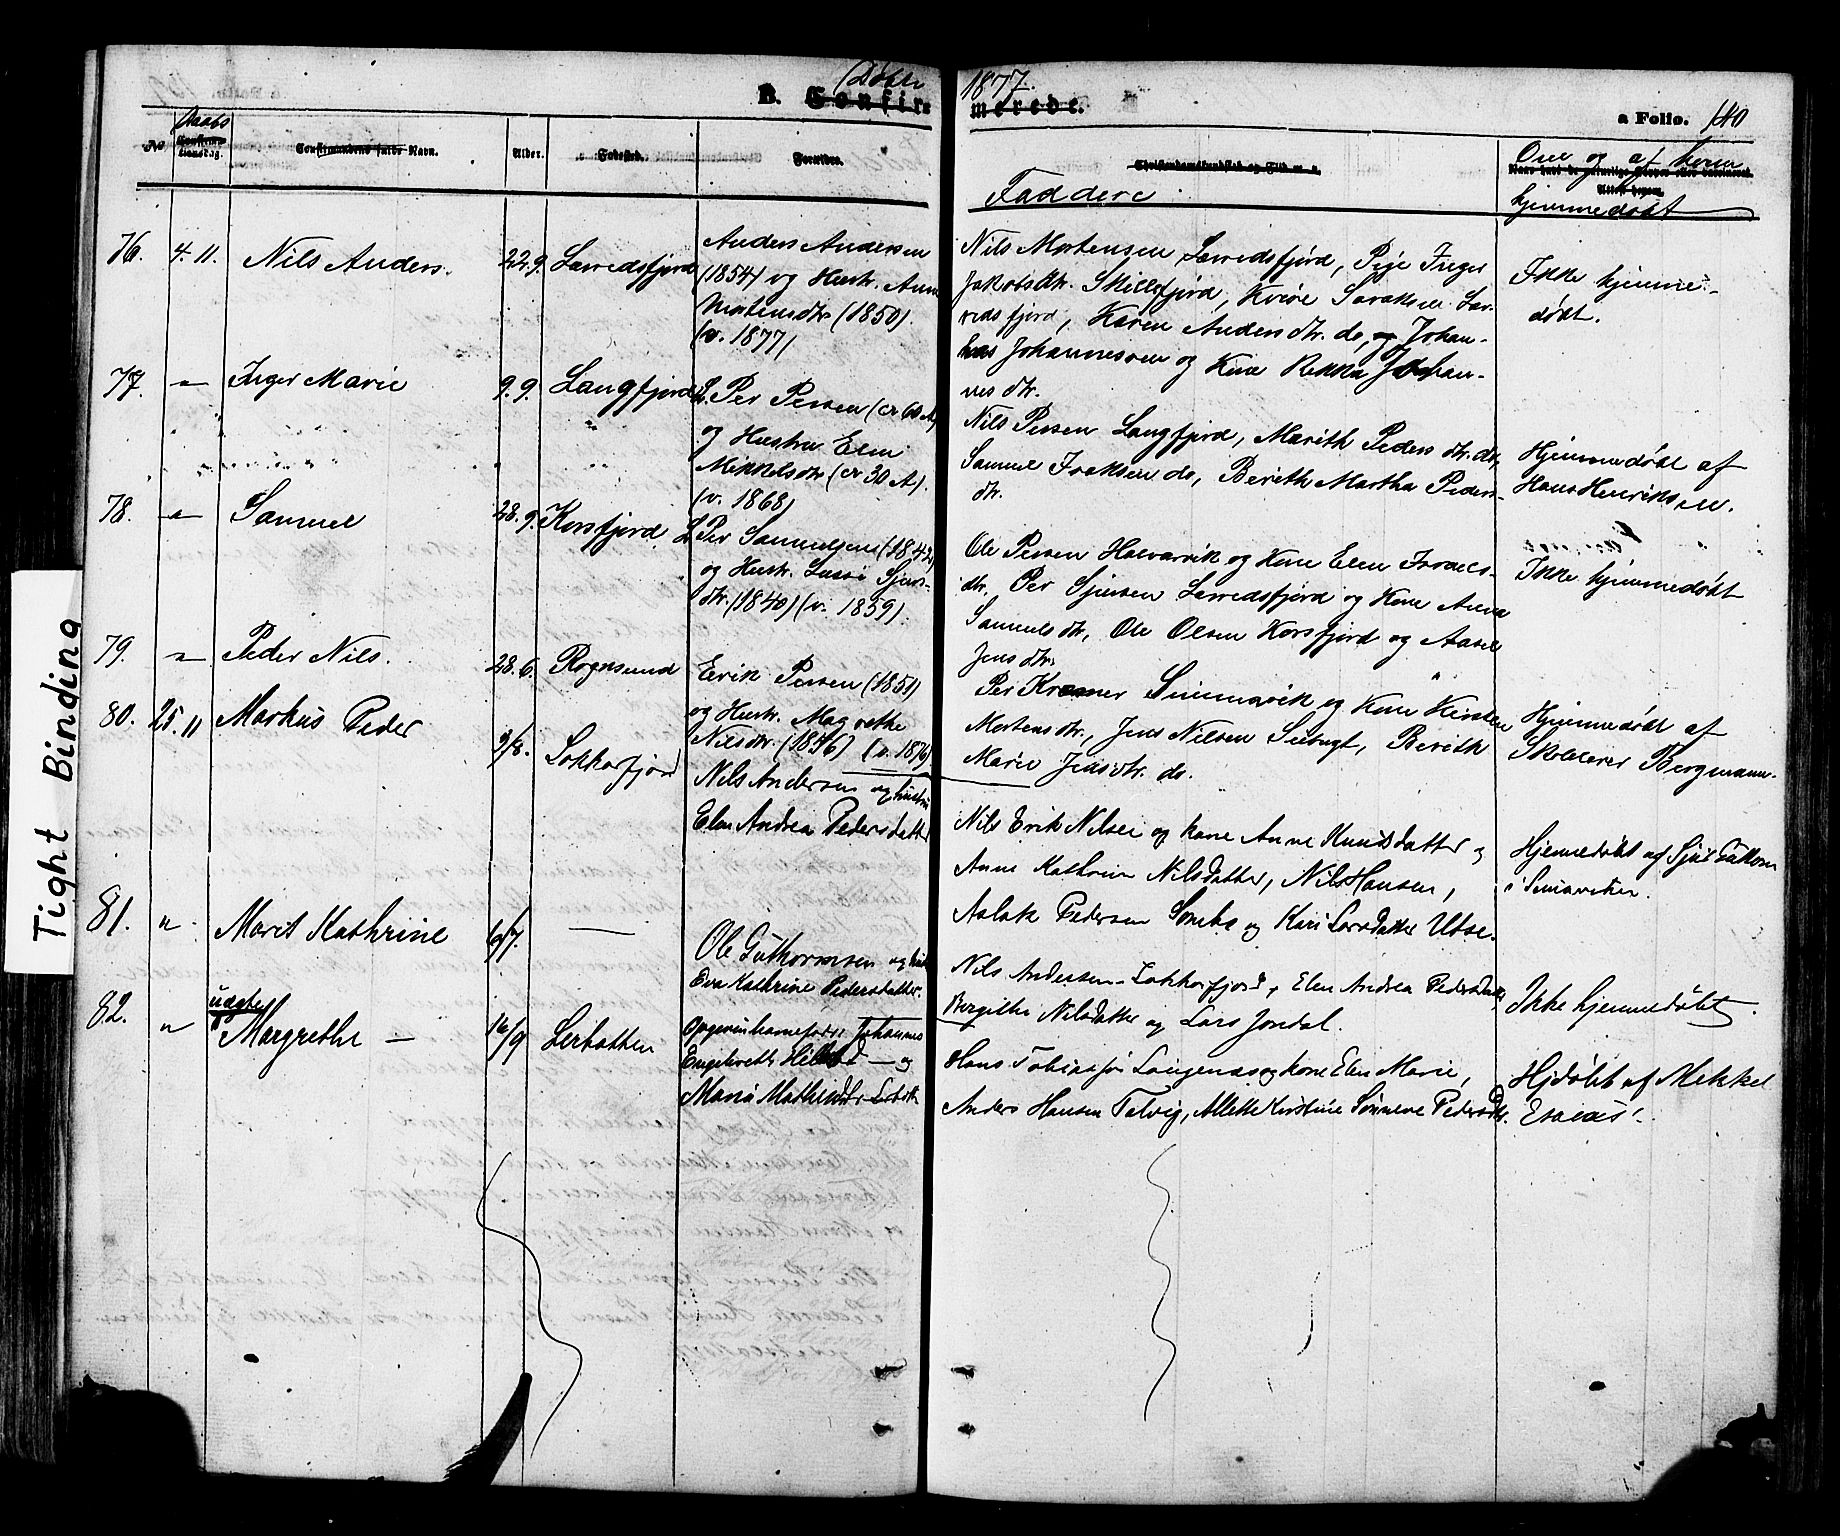 Døbte 1877.
B. Confirmerede.
a Folio. 140
No
Daabs
Alder.
Fødested.
Forældre.
Faddere
Om og af hvem
hjemmedøbt
76. 4. 11. Nils Anders. 22. 9. Lerredsfjord
Anders Andersen
(1854) og Hustr. Anne
Mortensdtr (1850).
(v. 1877)
Nils Mortensen Lerredsfjord, Peje Inger
Jakobsdtr. Skillefjord, Kvive Saraksen Ler-
redsfjord, Karen Andersdtr. do, og Johan-
nes Johannesen og Kone Rikka Johan-
nesdtr.
Ikke hjemme-
døbt.
77. " Inger Marie 9. 9. Langfjord
Per Persen (cr 60 A)
og Hustru Elen
Mikkelsdtr (cr 30 A).
(v. 1868)
Nils Persen Langfjord, Marith Pedersdtr. do,
Samuel Isaksen do, Berith Martha Peders-
dtr.
Hjemmedøbt af
Hans Henriksen.
78. " Samuel 28. 9. Korsfjord
Per Samuelsen (1842)
og Hustr. Sjurs-
dtr. (1840) (v. 1859).
Ole Persen og Kone Elen Israels-
dtr. Per Sjursen Lerredsfjord og Kone Anna
Samuelsdtr, Ole Olsen Korsfjord og Aasel
Jensdtr.
Ikke hjemmedøbt
79. " Peder Nils. 28. 6. Rognsund
Eerik Persen (1851)
og Hustr. Magrethe
Nilsdtr. (1856) (v. 1876)
Per Kræmer Simmavik og Kone Kirsten
Mortensdtr, Jens Nilsen Seibugt, Berith
Marie Jensdtr. do.
Hjemmedøbt af
Skolelærer Bergmann.
80. 25. 11 Markus Peder 3/8. Lokkarfjord
Nils Andersen og hustru
Elen Andrea Pedersdatter
Nils Erik Nilsen og kone Anne Knudsdatter og
Anne Kathrine Nilsdatter, Nils Hansen,
Aslak Pedersen og Kari Larsdatter
Hjemmedøbt af Sjur
i Simavika.
81. " Marit Kathrine 6/7. —
Ole Guthormsen og hustru
Eva Kathrine Pedersdatter.
Nils Andersen Lokkarfjord, Elen Andrea Pedersdatter
Bergithe Nilsdatter og Lars Jondal.
Ikke hjemmedøbt.
82. " uægte
Margrethe — 16/9 Lerbotten
Opgiven barnefader: Johannes
Engebreth Hilbod — og
Maria Mathisdtr Lerbotn
Hans Tobiassøn Langenæs og kone Elen Marie,
Anders Hansen Talvig, Allette Kirstine Sønneve Pedersdtr.
Hjdøbt af Mikkel
Esaias.
Tight Binding